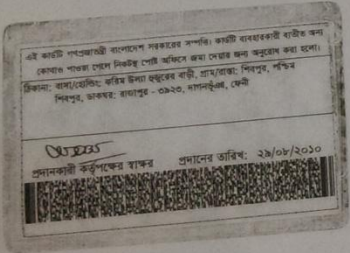 এই কার্ডটি গণপ্রজাতন্ত্রী বাংলাদেশ সরকারের সম্পত্তি। কার্ডটি ব্যবহারকারী ব্যতীত অন্য
কোথাও পাওয়া গেলে নিকটস্থ পোস্ট অফিসে জমা দেয়ার জন্য অনুরোধ করা হলো।
ঠিকানা: বাসা/হোল্ডিং: করিম উল্যা হুজুরের বাড়ী, গ্রাম/রাস্তা: শিবপুর, পশ্চিম
শিবপুর, ডাকঘর: রাজাপুর - ৩৯২৩, দাগনভূঞা, ফেনী
প্রদানকারী কর্তৃপক্ষের স্বাক্ষর প্রদানের তারিখ: ২৯/০৮/২০১০